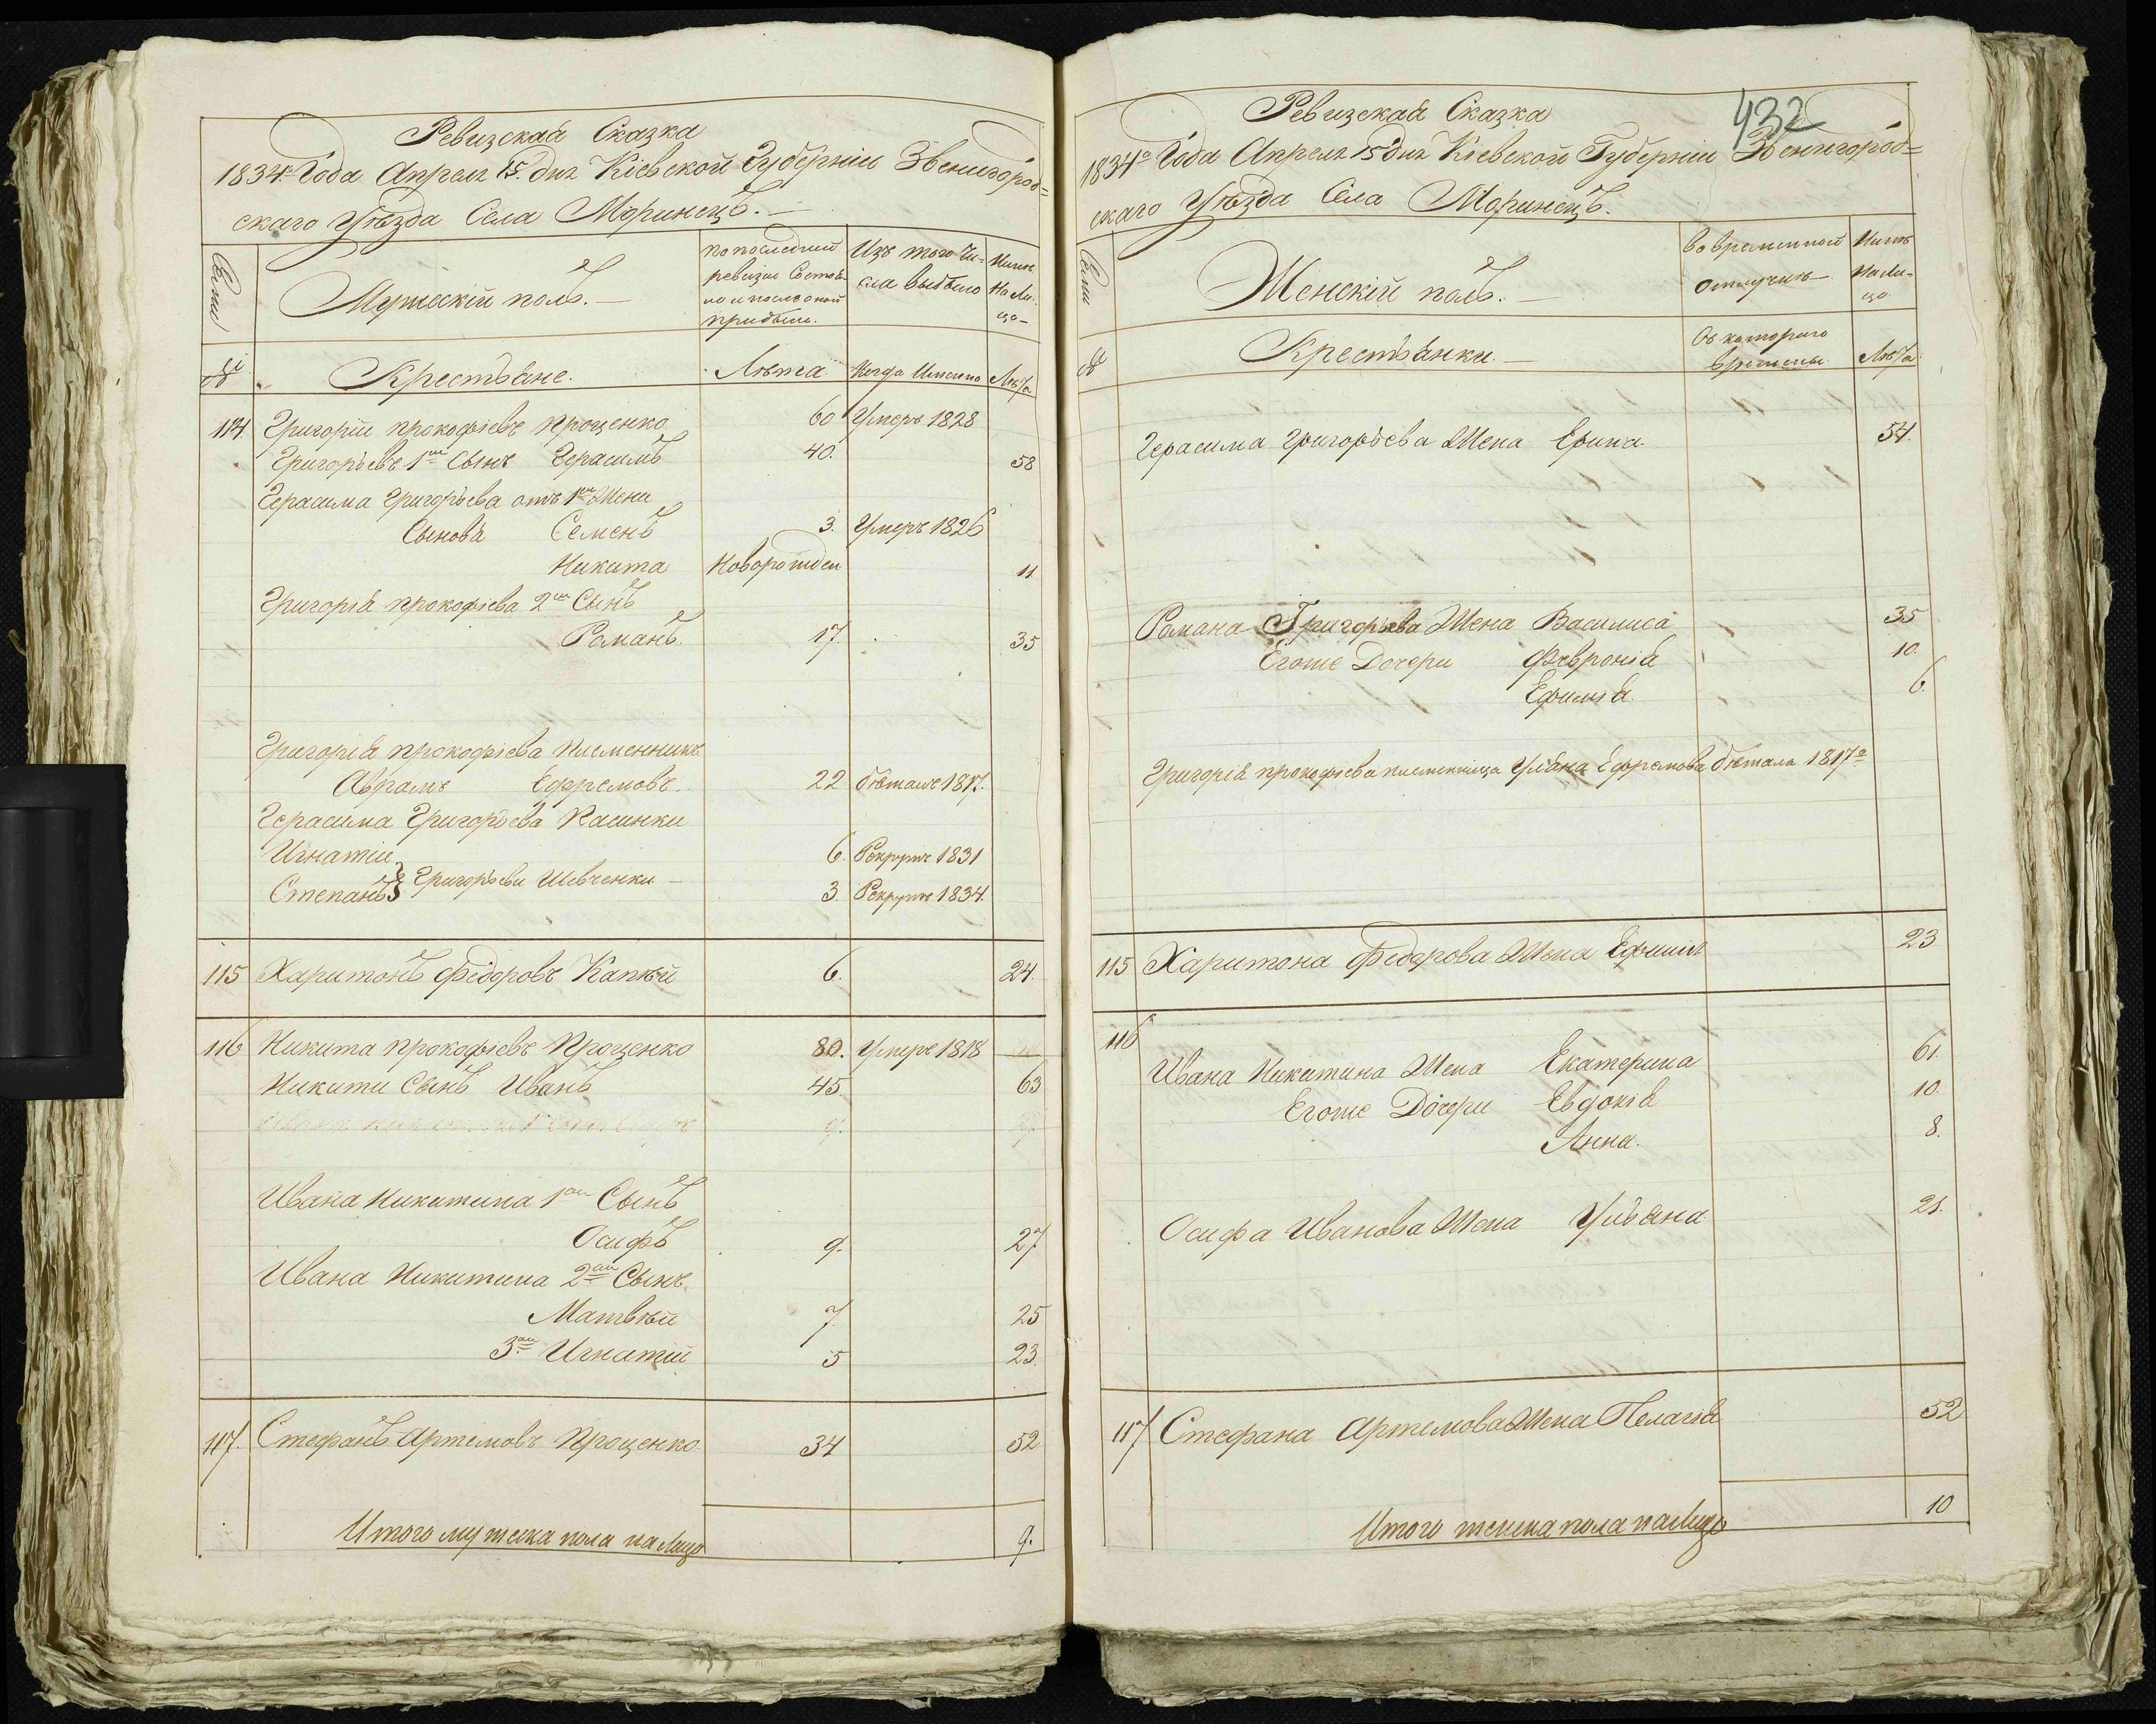 Ревизская Сказка
1834го Года Апреля 15. дня Кіевской Губерніи Звенигород=
скаго Уѣзда Села Моринецъ. —
Семьи
Мужескій полъ. —
по последней
ревизіи Состоя-
ло и после оной
прибыло.
Изъ того чи-
сла выбыло
Нынѣ
На Ли-
цо —
№
Крестьяне.
Лѣта
Когда Именно
Лѣта
114 Григорій прокофіевъ Проценко 60 Умеръ 1828
Григорьевъ 1й Сынъ Герасимъ 40. 58
Герасима Григорьева отъ 1й Жены
Сыновья Семенъ 3. Умеръ 1826
Никита Новорожден 11
Григорія прокофіева 2й Сынъ
Романъ 17. 35
Григорія прокофіева племенникъ
Аврамъ Ефремовъ. 22 бѣжалъ 1817.
Герасима Григорьева Пасинки
Игнатій 6. Рекрутъ 1831
Григорьеви Шевченки —
Степанъ 3. Рекрутъ 1834.
115 Харитонъ Федоровъ Капѣй 6. 24.
116 Никита Прокофіевъ Проценко 80. Умеръ 1818 —
Никиты Сынъ Иванъ 45. 63
Ивана Никитина 1й Сынъ
Осифъ 9. 27
Ивана Никитина 2ай Сынъ.
Матвѣй 7. 25
3ай Игнатій 5 23.
117. Стефанъ Артемовъ Проценко 34 52
Итого мужеска пола на лицо 9.
432
Ревизская Сказка
1834го Года Апреля 15 дня Кіевской Губерніи Звенигород=
скаго Уѣзда Села Моринецъ.
Семьи
Женскій полъ. —
во временной
отлучкѣ —
Нынѣ
На Ли-
цо
№
Крестьянки. —
Съ которого
времены
Лѣта
Герасима Григорьева Жена Ерина 54.
Романа Григорьева Жена Василиса 35
Егоже Дочери Февронія 10.
Ефимія 6.
Григорія прокофіева племенница Уляна Ефремова бѣжала 1817го
115 Харитона Федорова Жена Ефимія 23
116
Ивана Никитина Жена Екатерина 61.
Егоже Дочери Евдокія 10.
Анна. 8.
Осифа Иванова Жена Ульяна 21.
117 Стефана Артемова Жена Пелагія 52
Итого женска пола на лицо 10